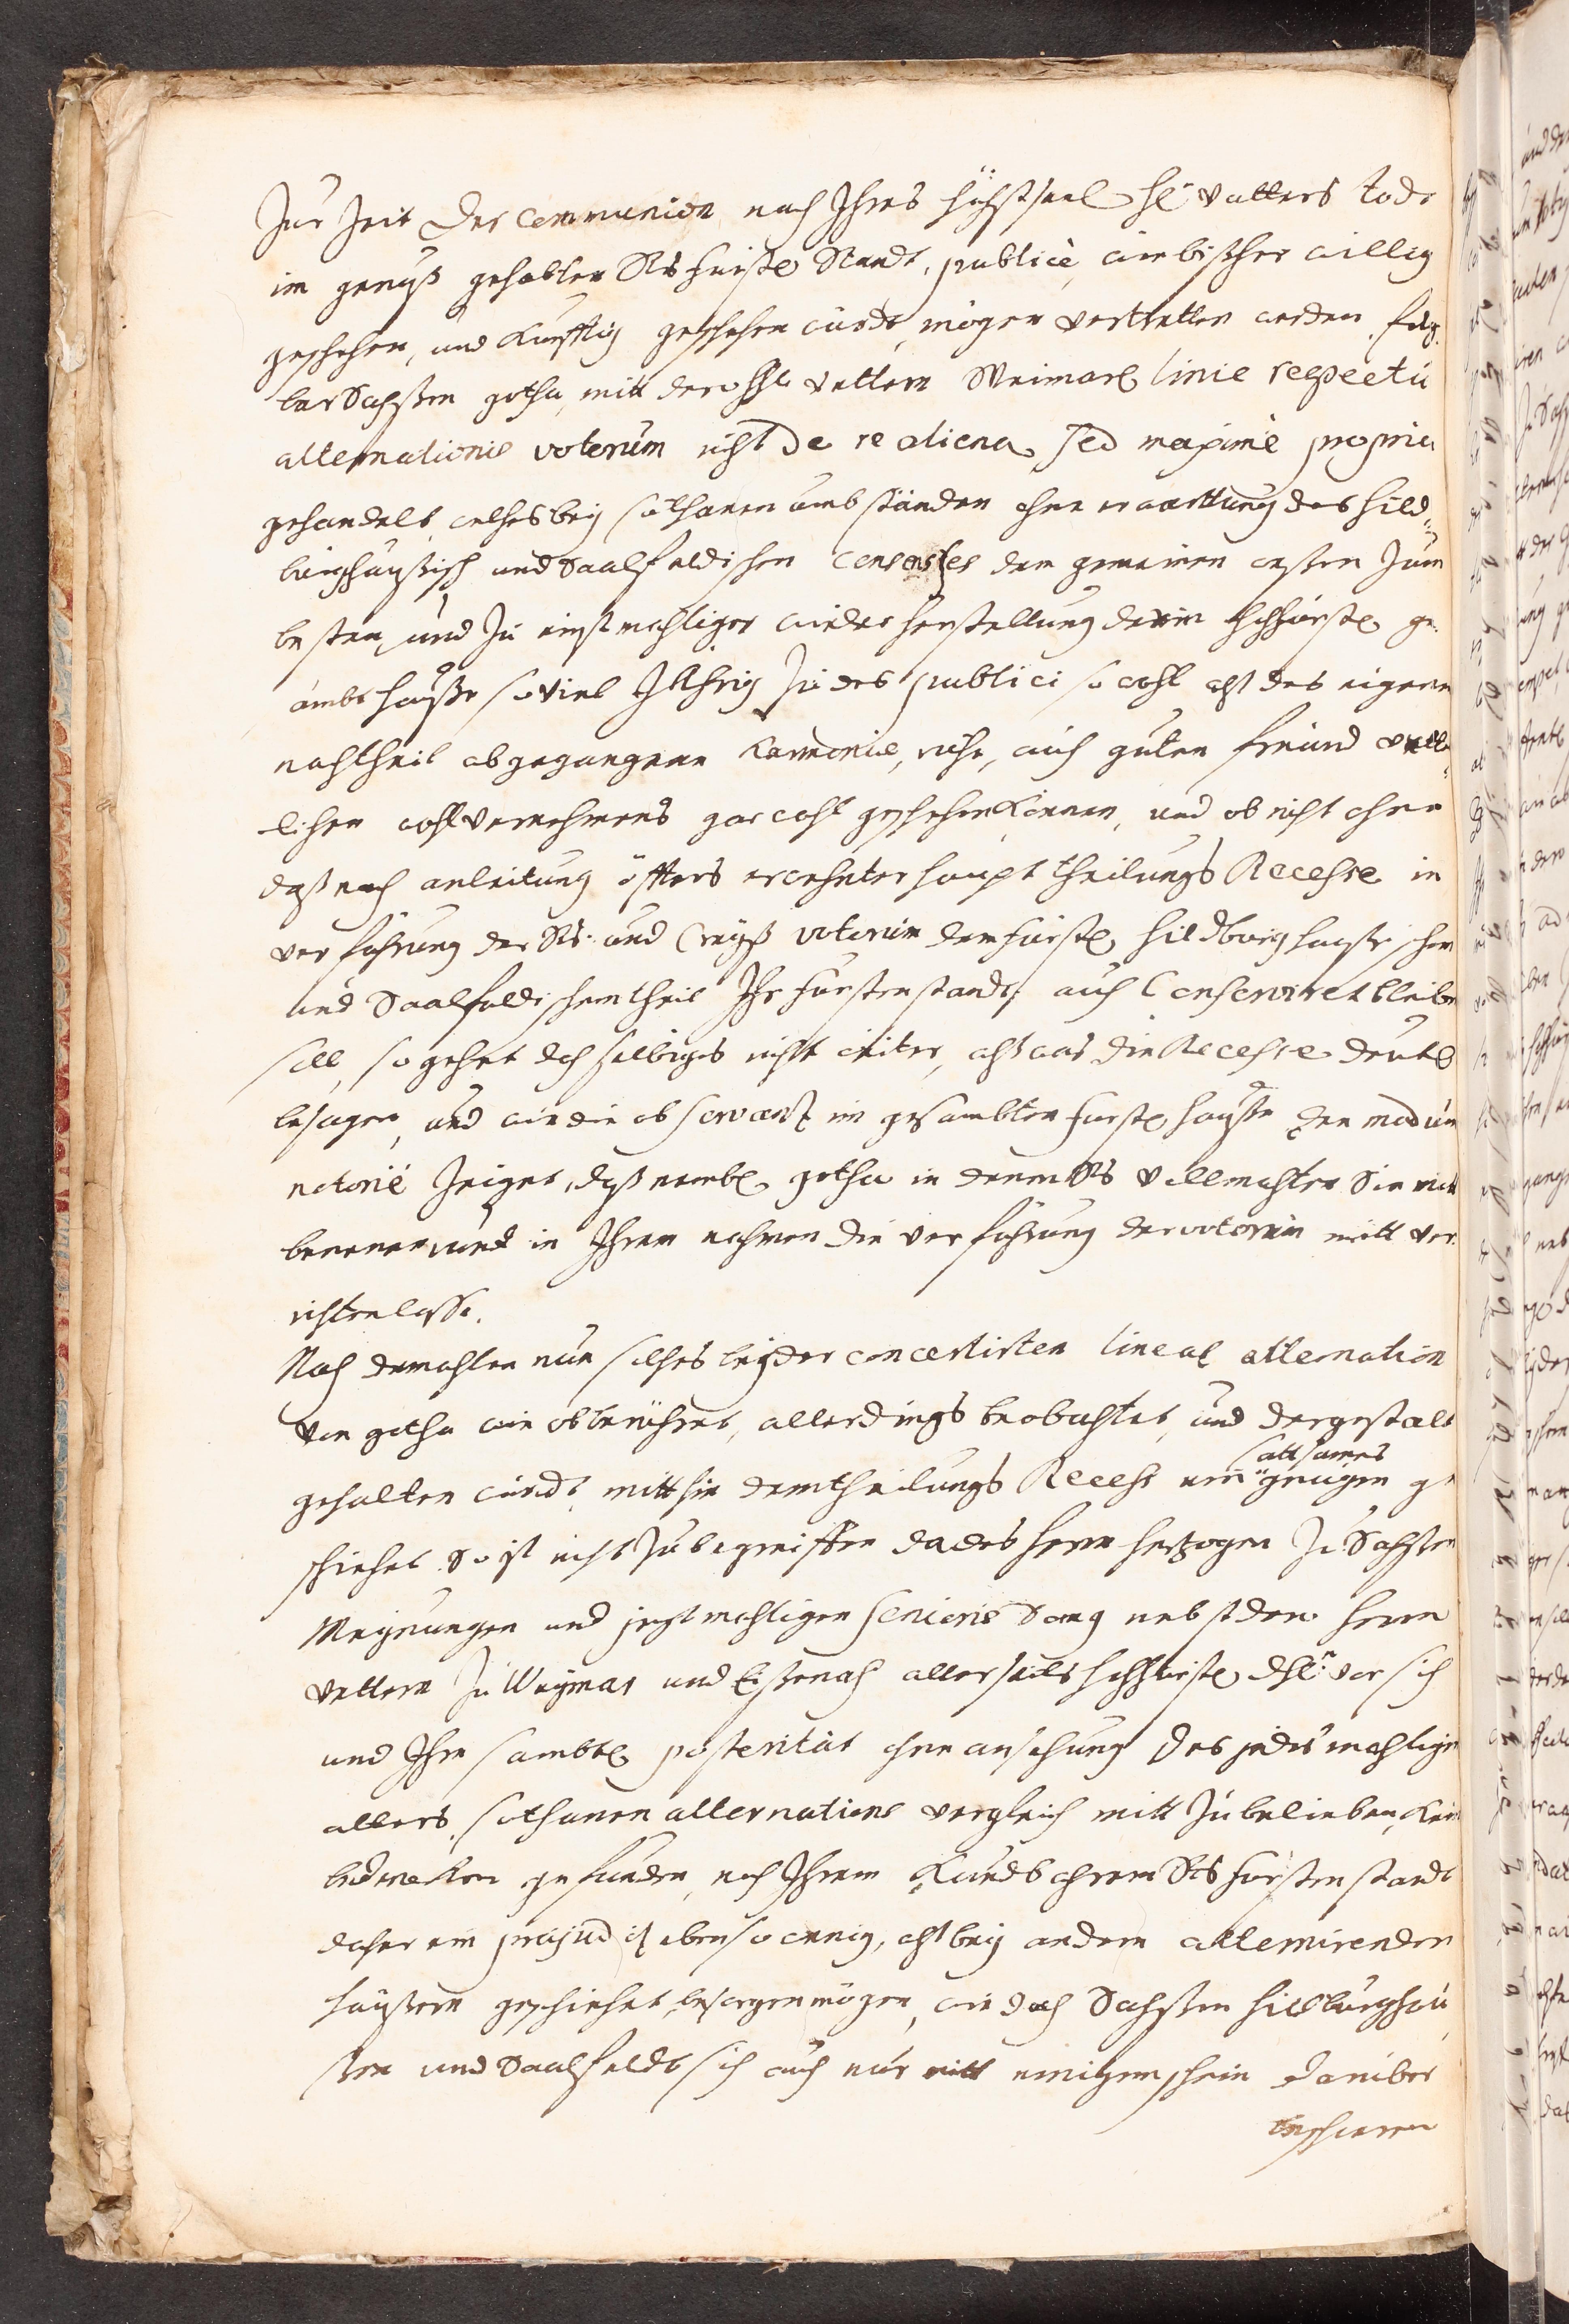 Zur Zeit der Communion nach Ihres höchstseel H. Vatters Tode
im genuß gehabten Rhs Fürstl Standt, publicè, wie bißher willig
geschehen, und künfftig geschehen würdt, mögen vertretten werden, folg¬
bar Sachßen Gotha, mitt dero HH. Vettern Weimarl Linie respectu
alternationis votorum nicht de re aliena, sed maximè propria
gehandelt, welches bey sothanen umbständen ohne erwarttung des Hild¬
burghaußisch und Saalfeldischen Consenses dem gemeinen wesen zum
besten, und zu einstmahliger wiederherstellung derin Hochfürstl ge¬
sambt hauße so viel Jahrig zu des publici so wohl alß des eigenen
nachtheil abgegangene harmonie, ruhe, auch guten freund vett¬
lichen wohlvernehmens gar wohl geschehen können, und ob nicht ohne
daß nach anleitung öffters erwehnter haupt theilungs Recesse in
verführung der Rhs. und Creyß votorum dem Fürstl Hildburghaußischen
und Saalfeldischen theil Ihr Fürstenstandt, auch Conserviret bleiben
soll, so gehet doch selbiges nicht weiter, alß was die Recesse deutl
besagen, und wie die observanz im gesambten Fürstl hauße den modum
notoriè zeiget, daß nembl Gotha in denen Rhs Vollmachten Sie mitt
benennen und in Ihrem nahmen die verführung der votorum mitt ver¬
richten lasse.
Nach demahlen nun solches bey der concertirten lineal alternation
von Gotha wie obberühret, allerdings beobachtet, und dergestalt
gehalten würdt, mitthin dem theilungs Recess ein sattsames genügen ge
schiehet. So ist nicht zu begreiffen da des Herrn Hertzogen zu Sachßen
Meynungen und jeztmahligen Senioris Dchl nebst dero Herrn
Vettern zu Weymar und Eißenach allerseits Hochfürstl Dhl. vor sich
und Ihre sambtl posterität ohne ansehung des jedesmahligen
alters, sothanen alternations vergleich mitt zu belieben, kein
bedencken gefunden, noch Ihrem kundtbahren Rhs Fürstenstandt
daher ein präjudiz ebenso wenig, alß bey andern alternirenden
häußern geschiehet, besorgen mögen, wie doch Sachßen Hildburghau¬
ßen und Saalfeldt sich auch nur mitt einigem schein darüber
beschweren